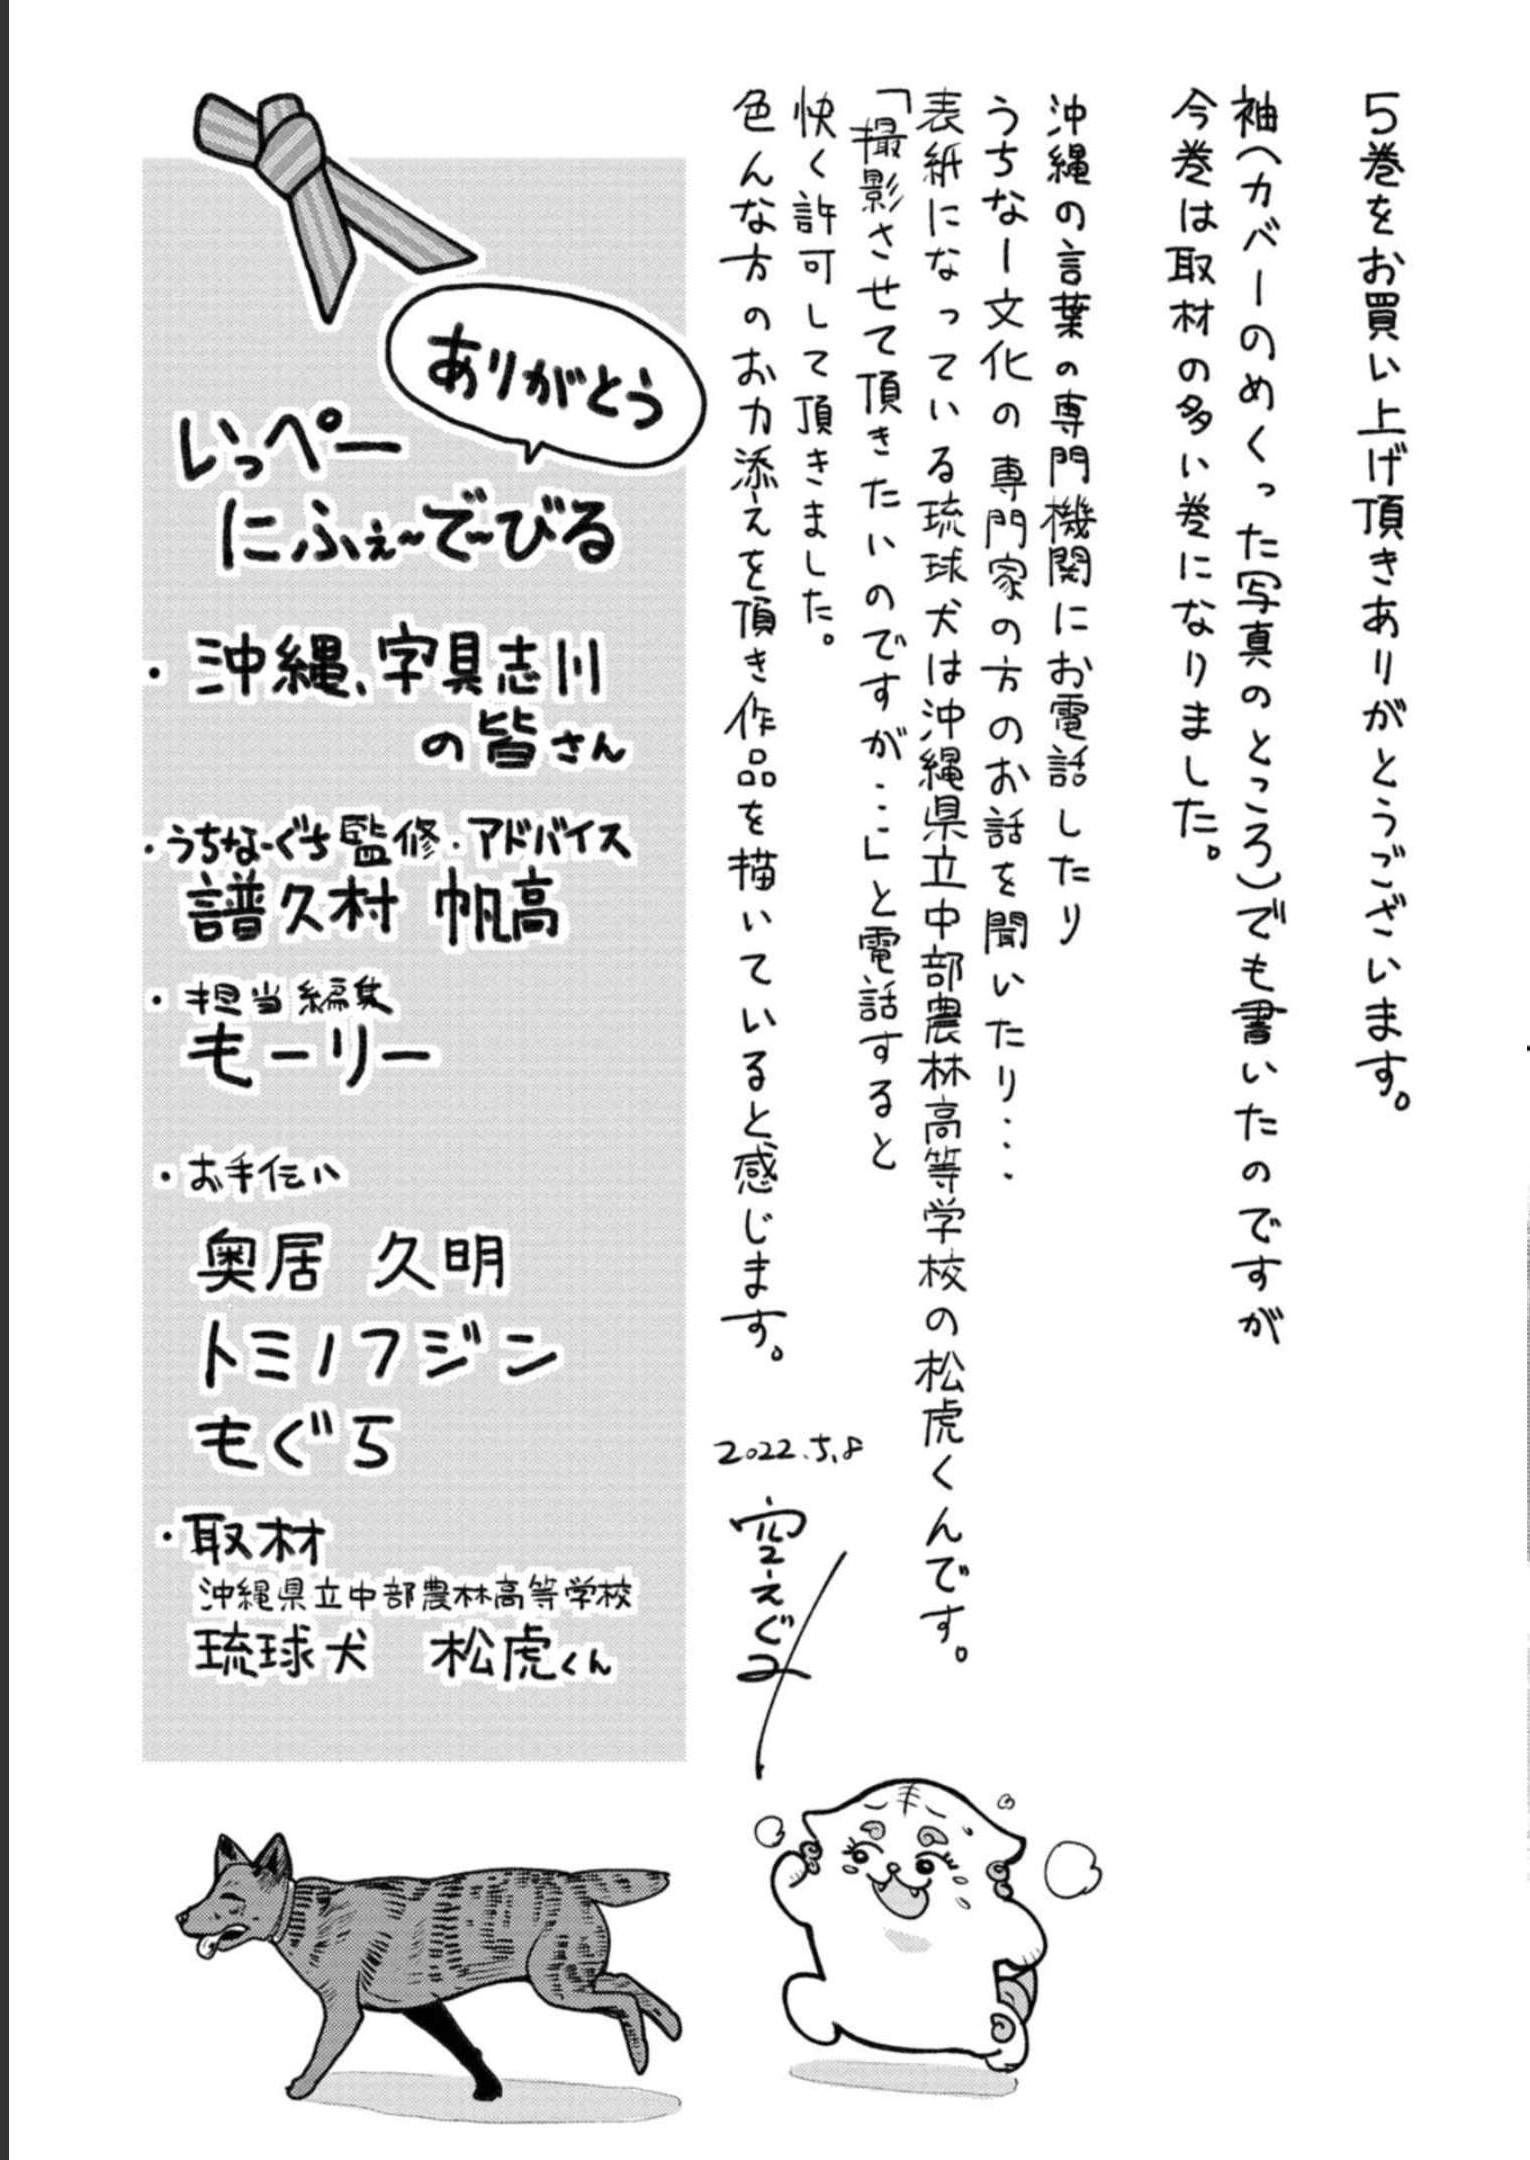 5巻をお買い上げ頂きありがとうございます。
袖(カバーのめくった写真のところ)でも書いたのですが
今巻は取材の多い巻になりました。
沖縄の言葉の専門機関にお電話したり
うちなー文化の専門家の方のお話を聞いたり…
表紙になっている琉球犬は沖縄県立中部農林高等学校の松虎くんです。
「撮影させて頂きたいのですが…」と電話すると
快く許可して頂きました。
色んな方のお力添えを頂き作品を描いていると感じます。
2022.5.8
空えぐみ
ありがとう
いっぺー
にふぇ〜で〜びる
・沖縄、字具志川
の皆さん
・うちなーぐち監修・アドバイス
譜久村 帆高
・担当編集
もーリー
・お手伝い
奥居 久明
トミノフジン
もぐら
・取材
沖縄県立中部農林高等学校
琉球犬 松虎くん